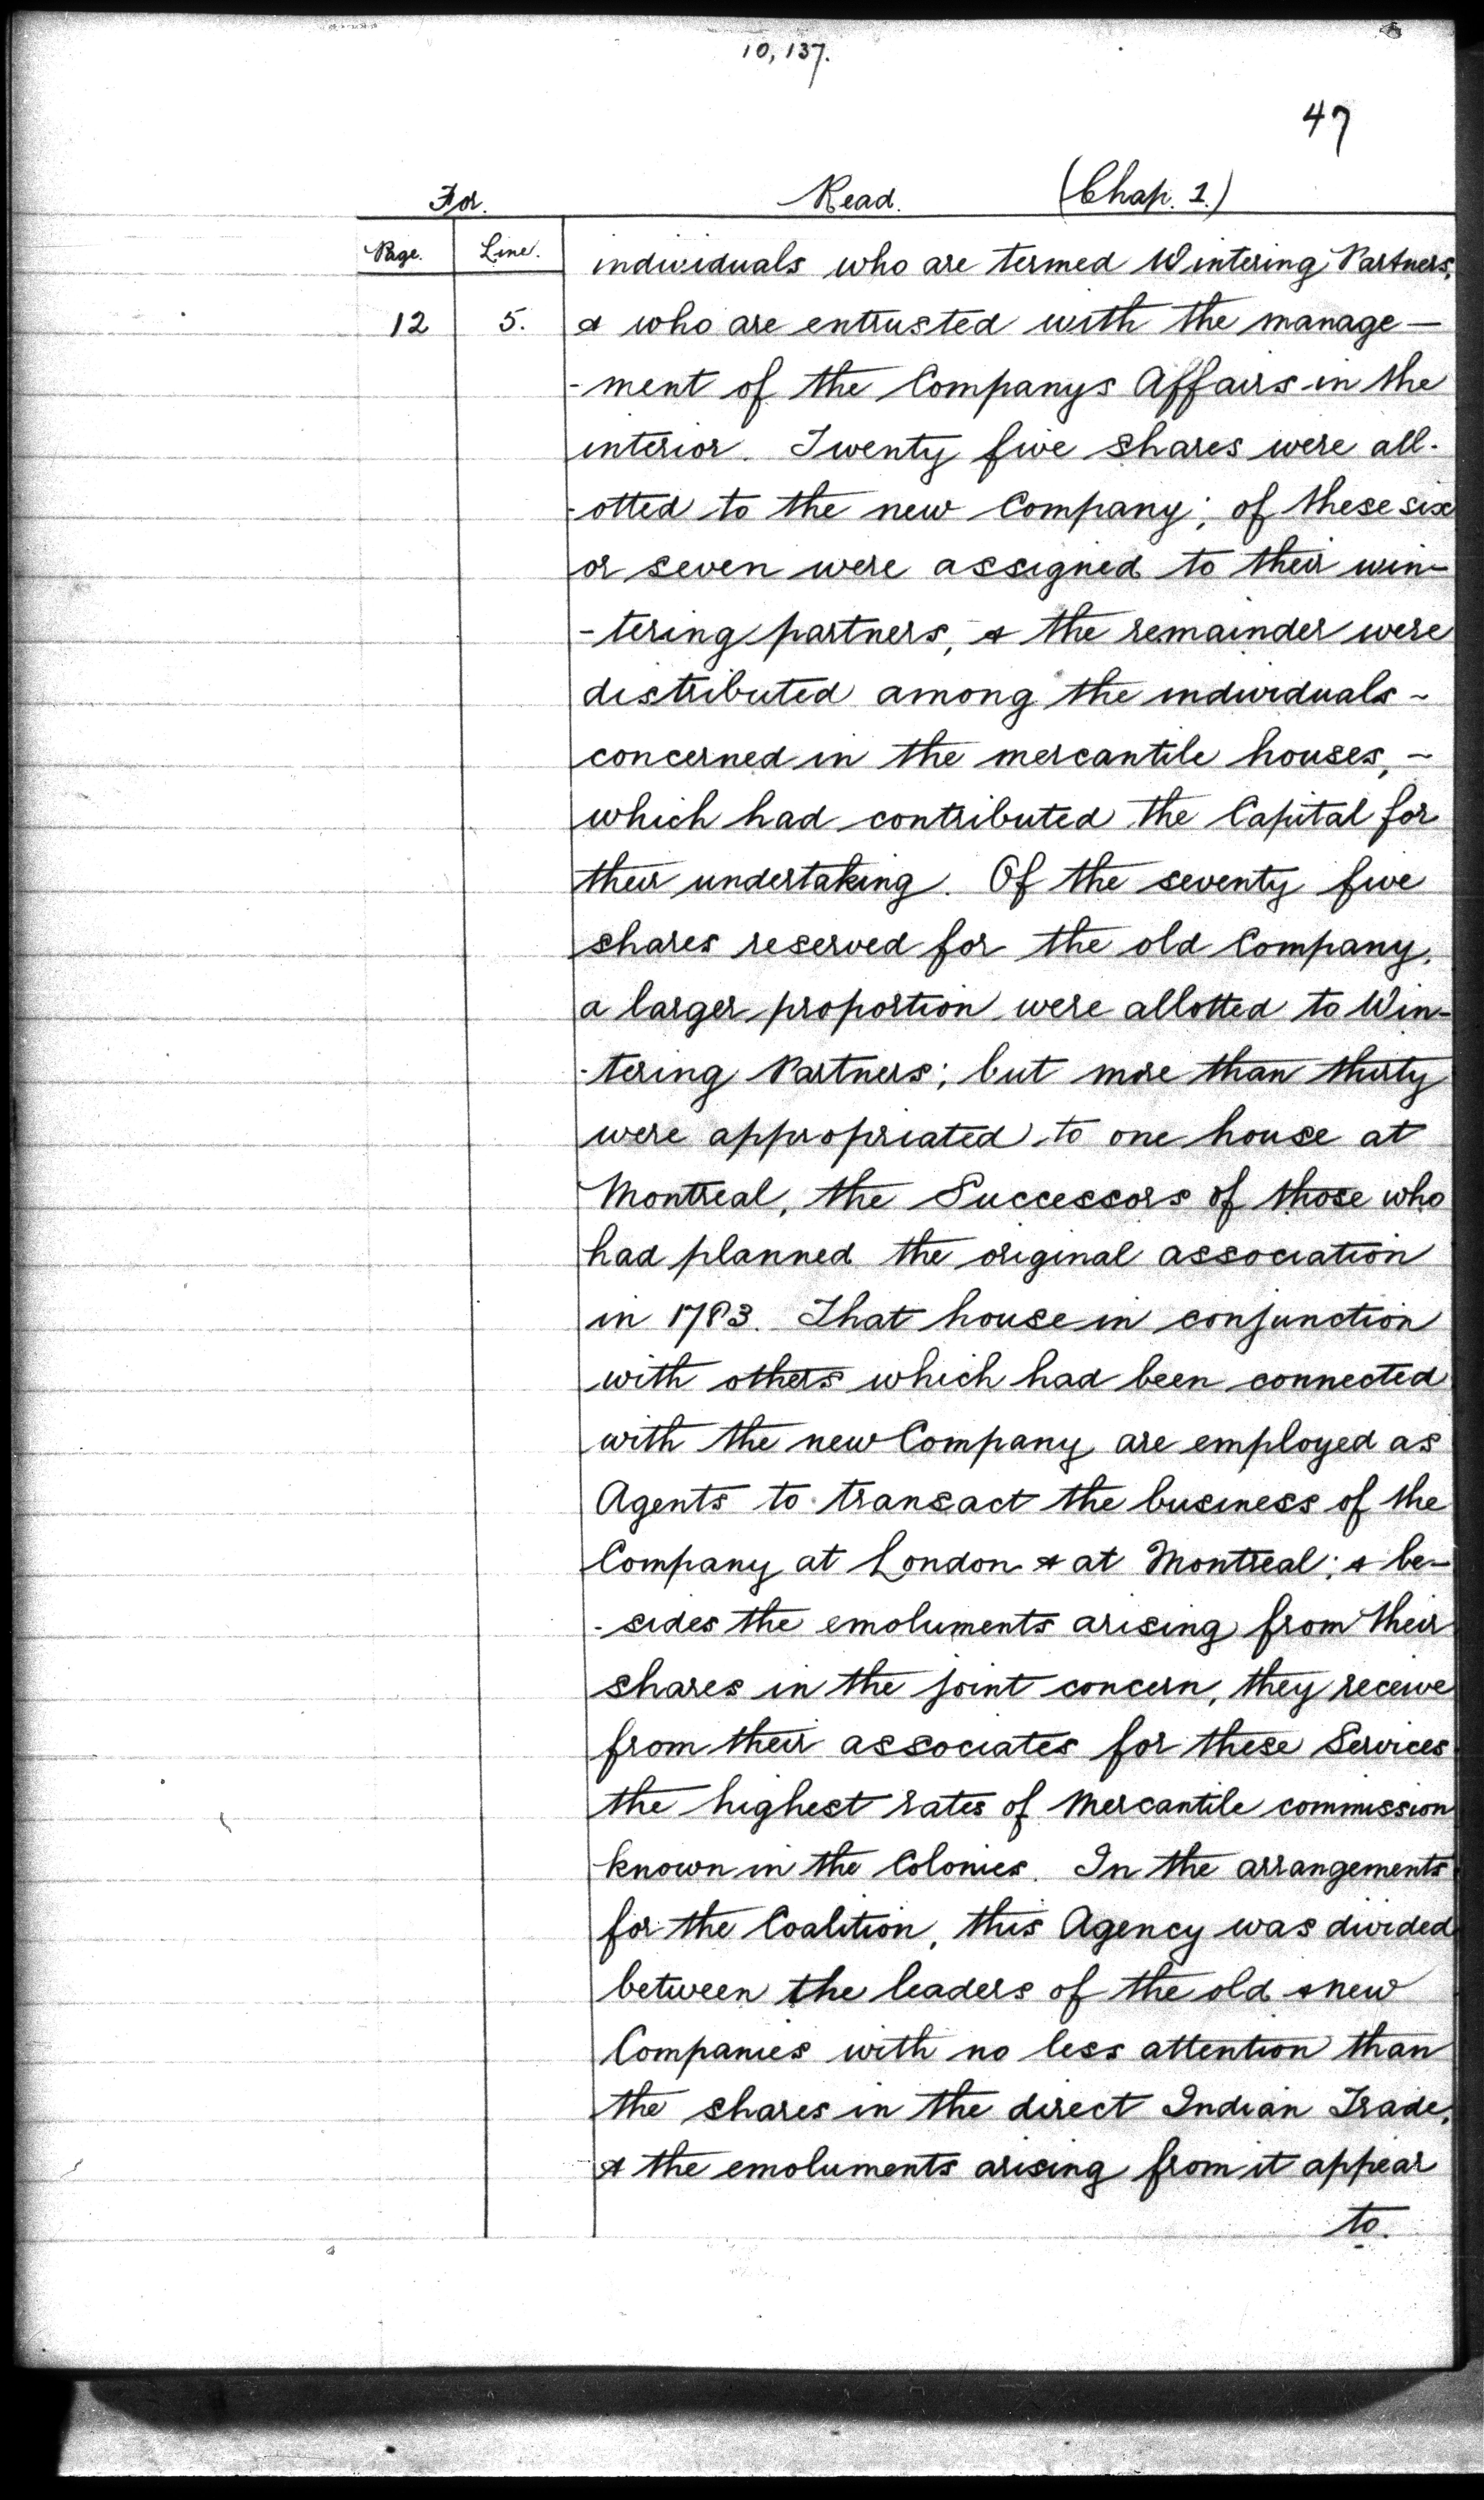 10,137.
47
For. Read. (Chap. 1.)
Page. Line. individuals who are termed Wintering Partners,
12 5. & who are entrusted with the manage—
-ment of the Companys Affairs in the
interior. Twenty five shares were all-
-otted to the new Company; of these six
or seven were assigned to their win-
-tering partners, & the remainder were
distributed among the individuals -
concerned in the mercantile houses, -
which had contributed the Capital for
their undertaking. Of the seventy five
shares reserved for the old Company,
a larger proportion were allotted to Win-
-tering Partners; but more than thirty
were appropriated to one house at
Montreal, the Successors of those who
had planned the original association
in 1783. That house in conjunction
with others which had been connected
with the new Company are employed as
Agents to transact the business of the
Company at London & at Montreal; & be-
-sides the emoluments arising from their
shares in the joint concern, they receive
from their associates for these Services
the highest rates of Mercantile commission
known in the Colonies. In the arrangements
for the Coalition, this Agency was divided
between the leaders of the old & new
Companies with no less attention than
the shares in the direct Indian Trade,
& the emoluments arising from it appear
to.